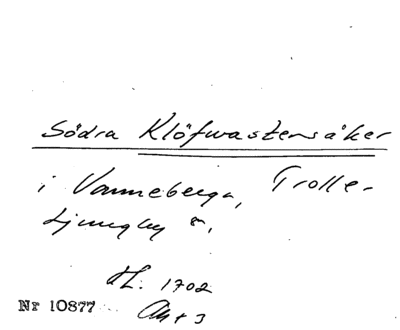 Södra Klöfwastensåker
i Vanneberga, Trolle-
Ljungby sn,
1702
Nr 10877